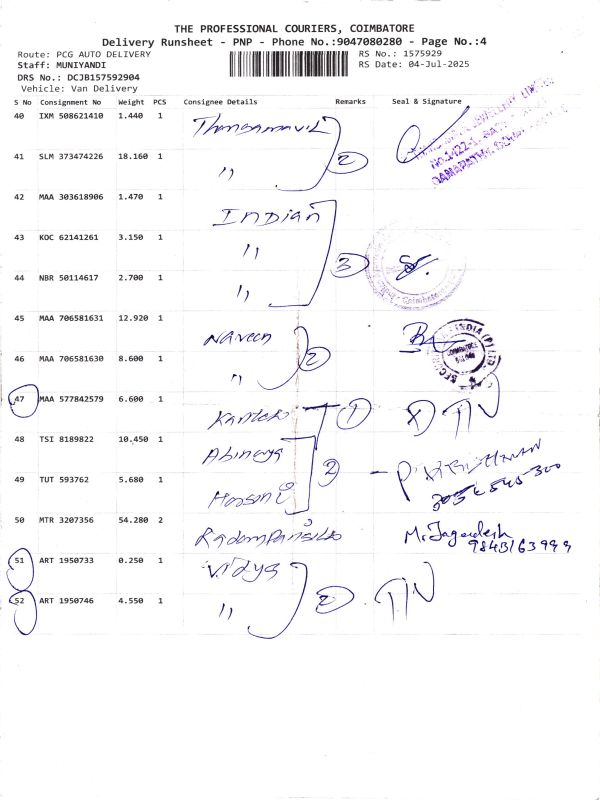 THE PROFESSIONAL COURIERS, COIMBATORE
Delivery Runsheet - PNP - Phone No.:9047080280 - Page No.:4
Route: PCG AUTO DELIVERY RS No.: 1575929
Staff: MUNIYANDI RS Date: 04-Jul-2025
DRS No.: DCJB157592904
Vehicle: Van Delivery
S No Consignment No Weight PCS Consignee Details Remarks Seal & Signature
40 IXM 508621410 1.440 1
41 SLM 373474226 18.160 1 " 2
42 MAA 303618906 1.470 1 Indian
43 KOC 62141261 3.150 1 " 3
44 NBR 50114617 2.700 1 "
45 MAA 706581631 12.920 1 Naveen
46 MAA 706581630 8.600 1 " 2
47 MAA 577842579 6.600 1 1
48 TSI 8189822 10.450 1 Abinaya
49 TUT 593762 5.680 1 2
50 MTR 3207356 54.280 2 Mr Jagadesh
51 ART 1950733 0.250 1 Vidya
52 ART 1950746 4.550 1 " 2